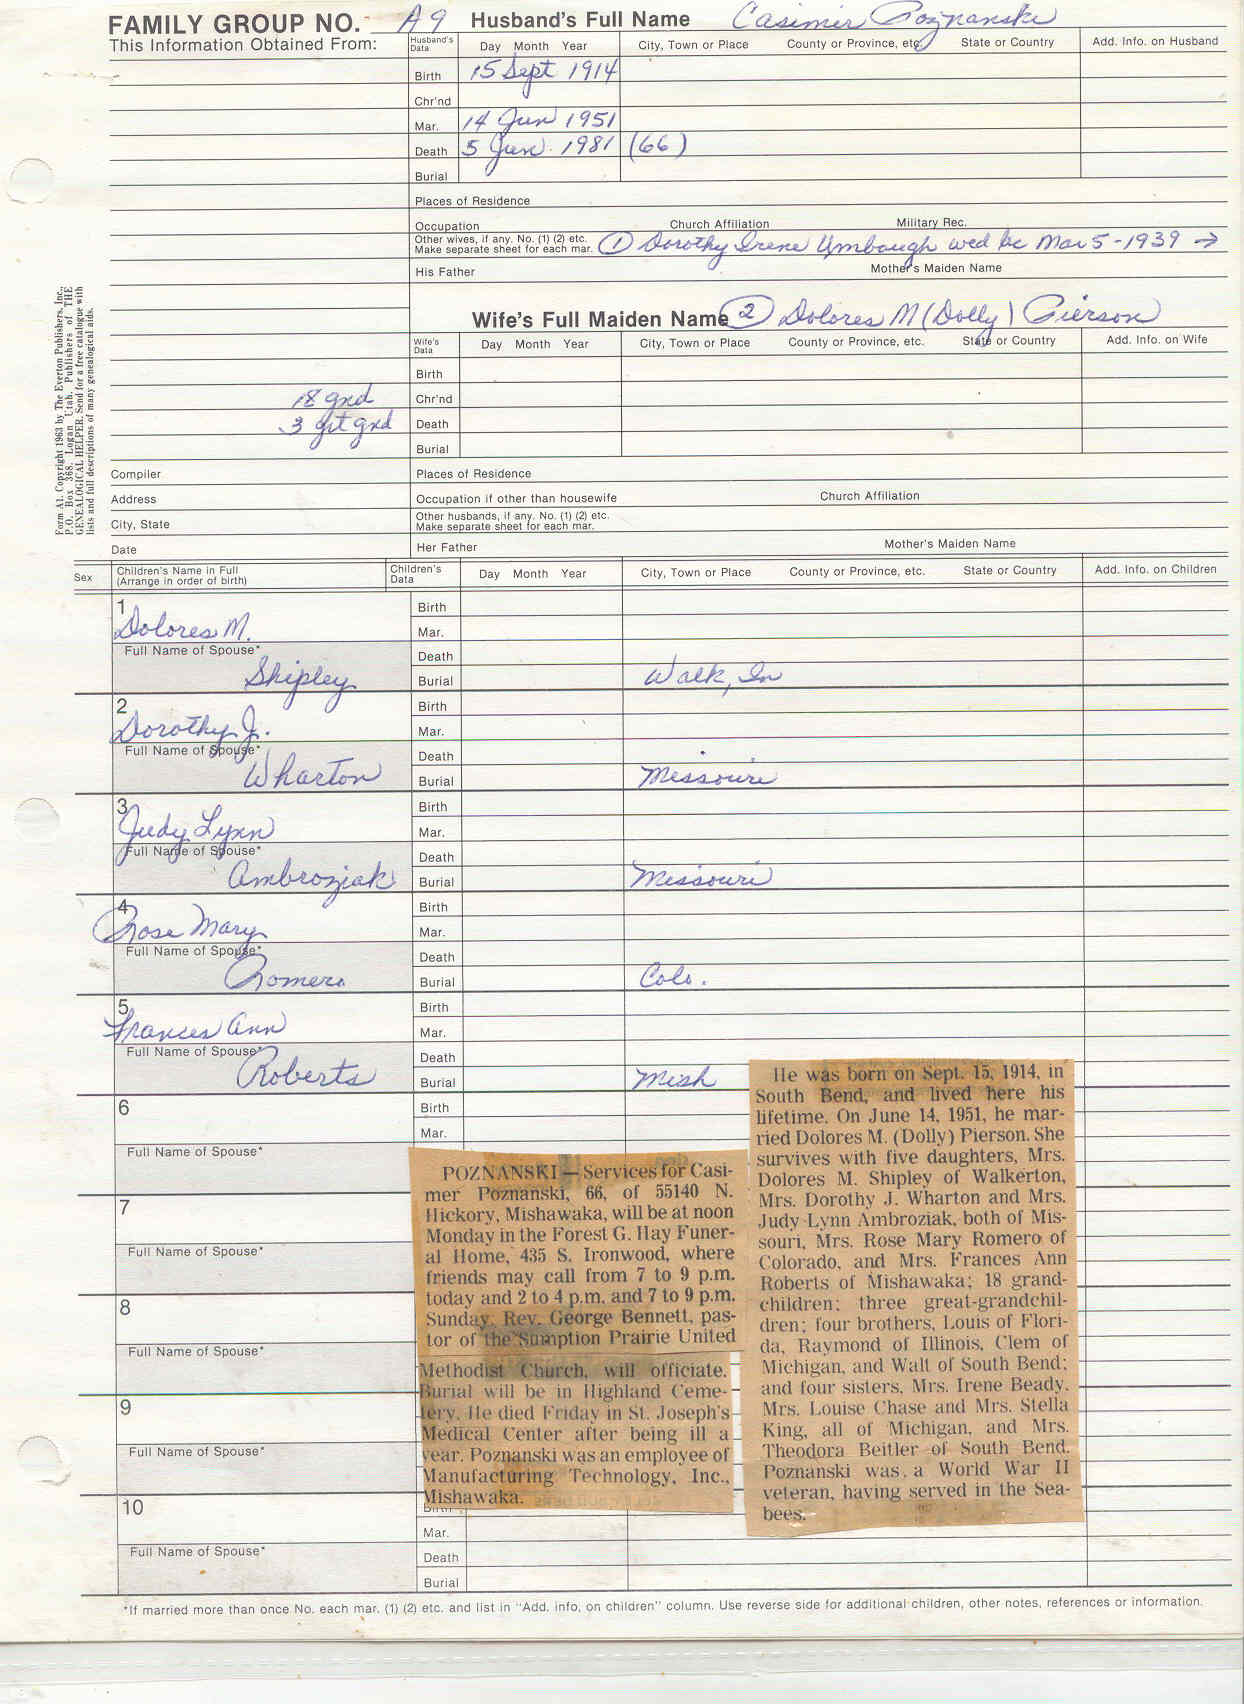 FAMILY GROUP NO. A9 Husband's Full Name Casimir Poznanski
This Information Obtained From:
Husband's Data Day Month Year City, Town or Place County or Province, etc. State or Country Add. Info. on Husband
Birth 15 Sept 1914
Chr'nd
Mar. 14 Jun 1951
Death 5 Jun. 1981 (66)
Burial
Places of Residence
Occupation Church Affiliation Military Rec.
Other wives, if any. No. (1) (2) etc.
Make separate sheet for each mar. (1) Dorothy Irene Umbaugh wed lic Mar 5-1939 →
His Father Mother's Maiden Name
Wife's Full Maiden Name (2) Dolores M (Dolly) Pierson
Wife's Data Day Month Year City, Town or Place County or Province, etc. State or Country Add. Info. on Wife
Birth
18 gnd Chr'nd
3 grt gnd Death
Burial
Compiler Places of Residence
Address Occupation if other than housewife Church Affiliation
City, State Other husbands, if any. No. (1) (2) etc.
Make separate sheet for each mar.
Date Her Father Mother's Maiden Name
Form A1. Copyright 1963 by The Everton Publishers, Inc.,
P.O. Box 368, Logan Utah. Publishers of THE
GENEALOGICAL HELPER. Send for a free catalogue with
lists and full descriptions of many genealogical aids.
Sex Children's Name in Full
(Arrange in order of birth) Children's Data Day Month Year City, Town or Place County or Province, etc. State or Country Add. Info. on Children
1 Birth
Dolores M. Mar.
Full Name of Spouse* Death
Shipley Burial Walk, In
2 Birth
Dorothy J. Mar.
Full Name of Spouse* Death
Wharton Burial Missouri
3 Birth
Judy Lynn Mar.
Full Name of Spouse* Death
Ambroziak Burial Missouri
4 Birth
Rose Mary Mar.
Full Name of Spouse* Death
Romero Burial Colo.
5 Birth
Frances Ann Mar.
Full Name of Spouse* Death
Roberts Burial Mish
6 Birth
Mar.
Full Name of Spouse*
7
Full Name of Spouse*
8
Full Name of Spouse*
9
Full Name of Spouse*
10 Birth
Mar.
Full Name of Spouse* Death
Burial
POZNANSKI — Services for Casi-
mer Poznanski, 66, of 55140 N.
Hickory, Mishawaka, will be at noon
Monday in the Forest G. Hay Funer-
al Home, 435 S. Ironwood, where
friends may call from 7 to 9 p.m.
today and 2 to 4 p.m. and 7 to 9 p.m.
Sunday. Rev. George Bennett, pas-
tor of the Sumption Prairie United
Methodist Church, will officiate.
Burial will be in Highland Ceme-
tery. He died Friday in St. Joseph's
Medical Center after being ill a
year. Poznanski was an employee of
Manufacturing Technology, Inc.,
Mishawaka.
He was born on Sept. 15, 1914, in
South Bend, and lived here his
lifetime. On June 14, 1951, he mar-
ried Dolores M. (Dolly) Pierson. She
survives with five daughters, Mrs.
Dolores M. Shipley of Walkerton,
Mrs. Dorothy J. Wharton and Mrs.
Judy Lynn Ambroziak, both of Mis-
souri, Mrs. Rose Mary Romero of
Colorado, and Mrs. Frances Ann
Roberts of Mishawaka; 18 grand-
children; three great-grandchil-
dren; four brothers, Louis of Flori-
da, Raymond of Illinois, Clem of
Michigan, and Walt of South Bend;
and four sisters, Mrs. Irene Beady,
Mrs. Louise Chase and Mrs. Stella
King, all of Michigan, and Mrs.
Theodora Beitler of South Bend.
Poznanski was a World War II
veteran, having served in the Sea-
bees.
*If married more than once No. each mar. (1) (2) etc. and list in "Add. info, on children" column. Use reverse side for additional children, other notes, references or information.